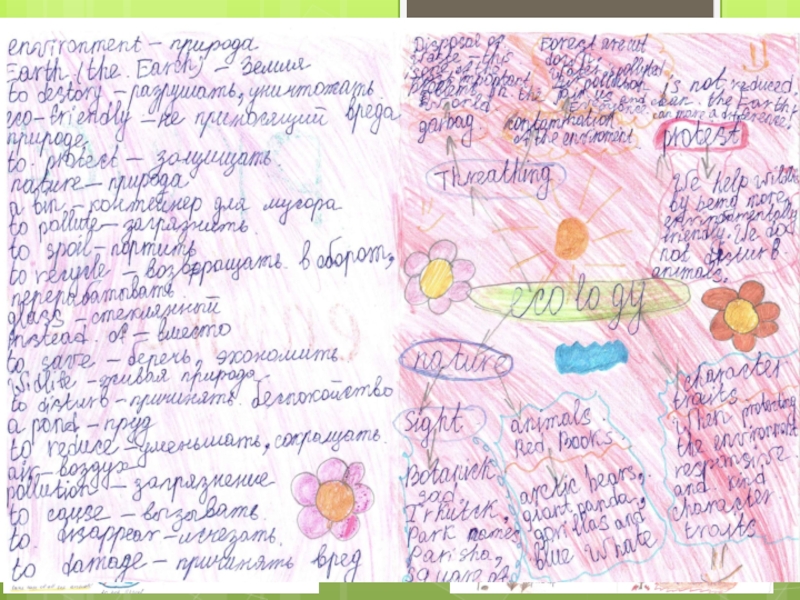 environment – природа
Earth (the Earth) – Земля
to destory – разрушать, уничтожать
eco-friendly – не приносящий вреда
природе,
to protest – защищать.
nature – природа
a bin – контейнер для мусора
to pollute – загрязнять.
to spoil – портить
to recycle – возвращать в оборот,
перерабатывать.
glass – стеклянный
instead of – вместо
to save – беречь, экономить
Widlife – живая природа
to disturb – причинять беспокойство
a pond – пруд
to reduce – уменьшать, сокращать.
air – воздух
pollution – загрязнение
to cause – вызывать.
to disappear – исчезать.
to damage – причинять вред
Disposal of
important
world
garbag
Forest are cut
contamination
of the enviroment
is not reduced,
the Earth
can make a difference.
protest
Threathing
We help
by being more
environmentally
friendly. We do
not disturb
animals.
ecology
nature
sight
Botanick
sad,
Irkutck,
Park names
Parisha,
square of
animals.
Red Books.
arctic bears,
giant panda,
gorillas and
blue Whale
character
traits
When protecting
the environment
responsive
and kind
character
traits